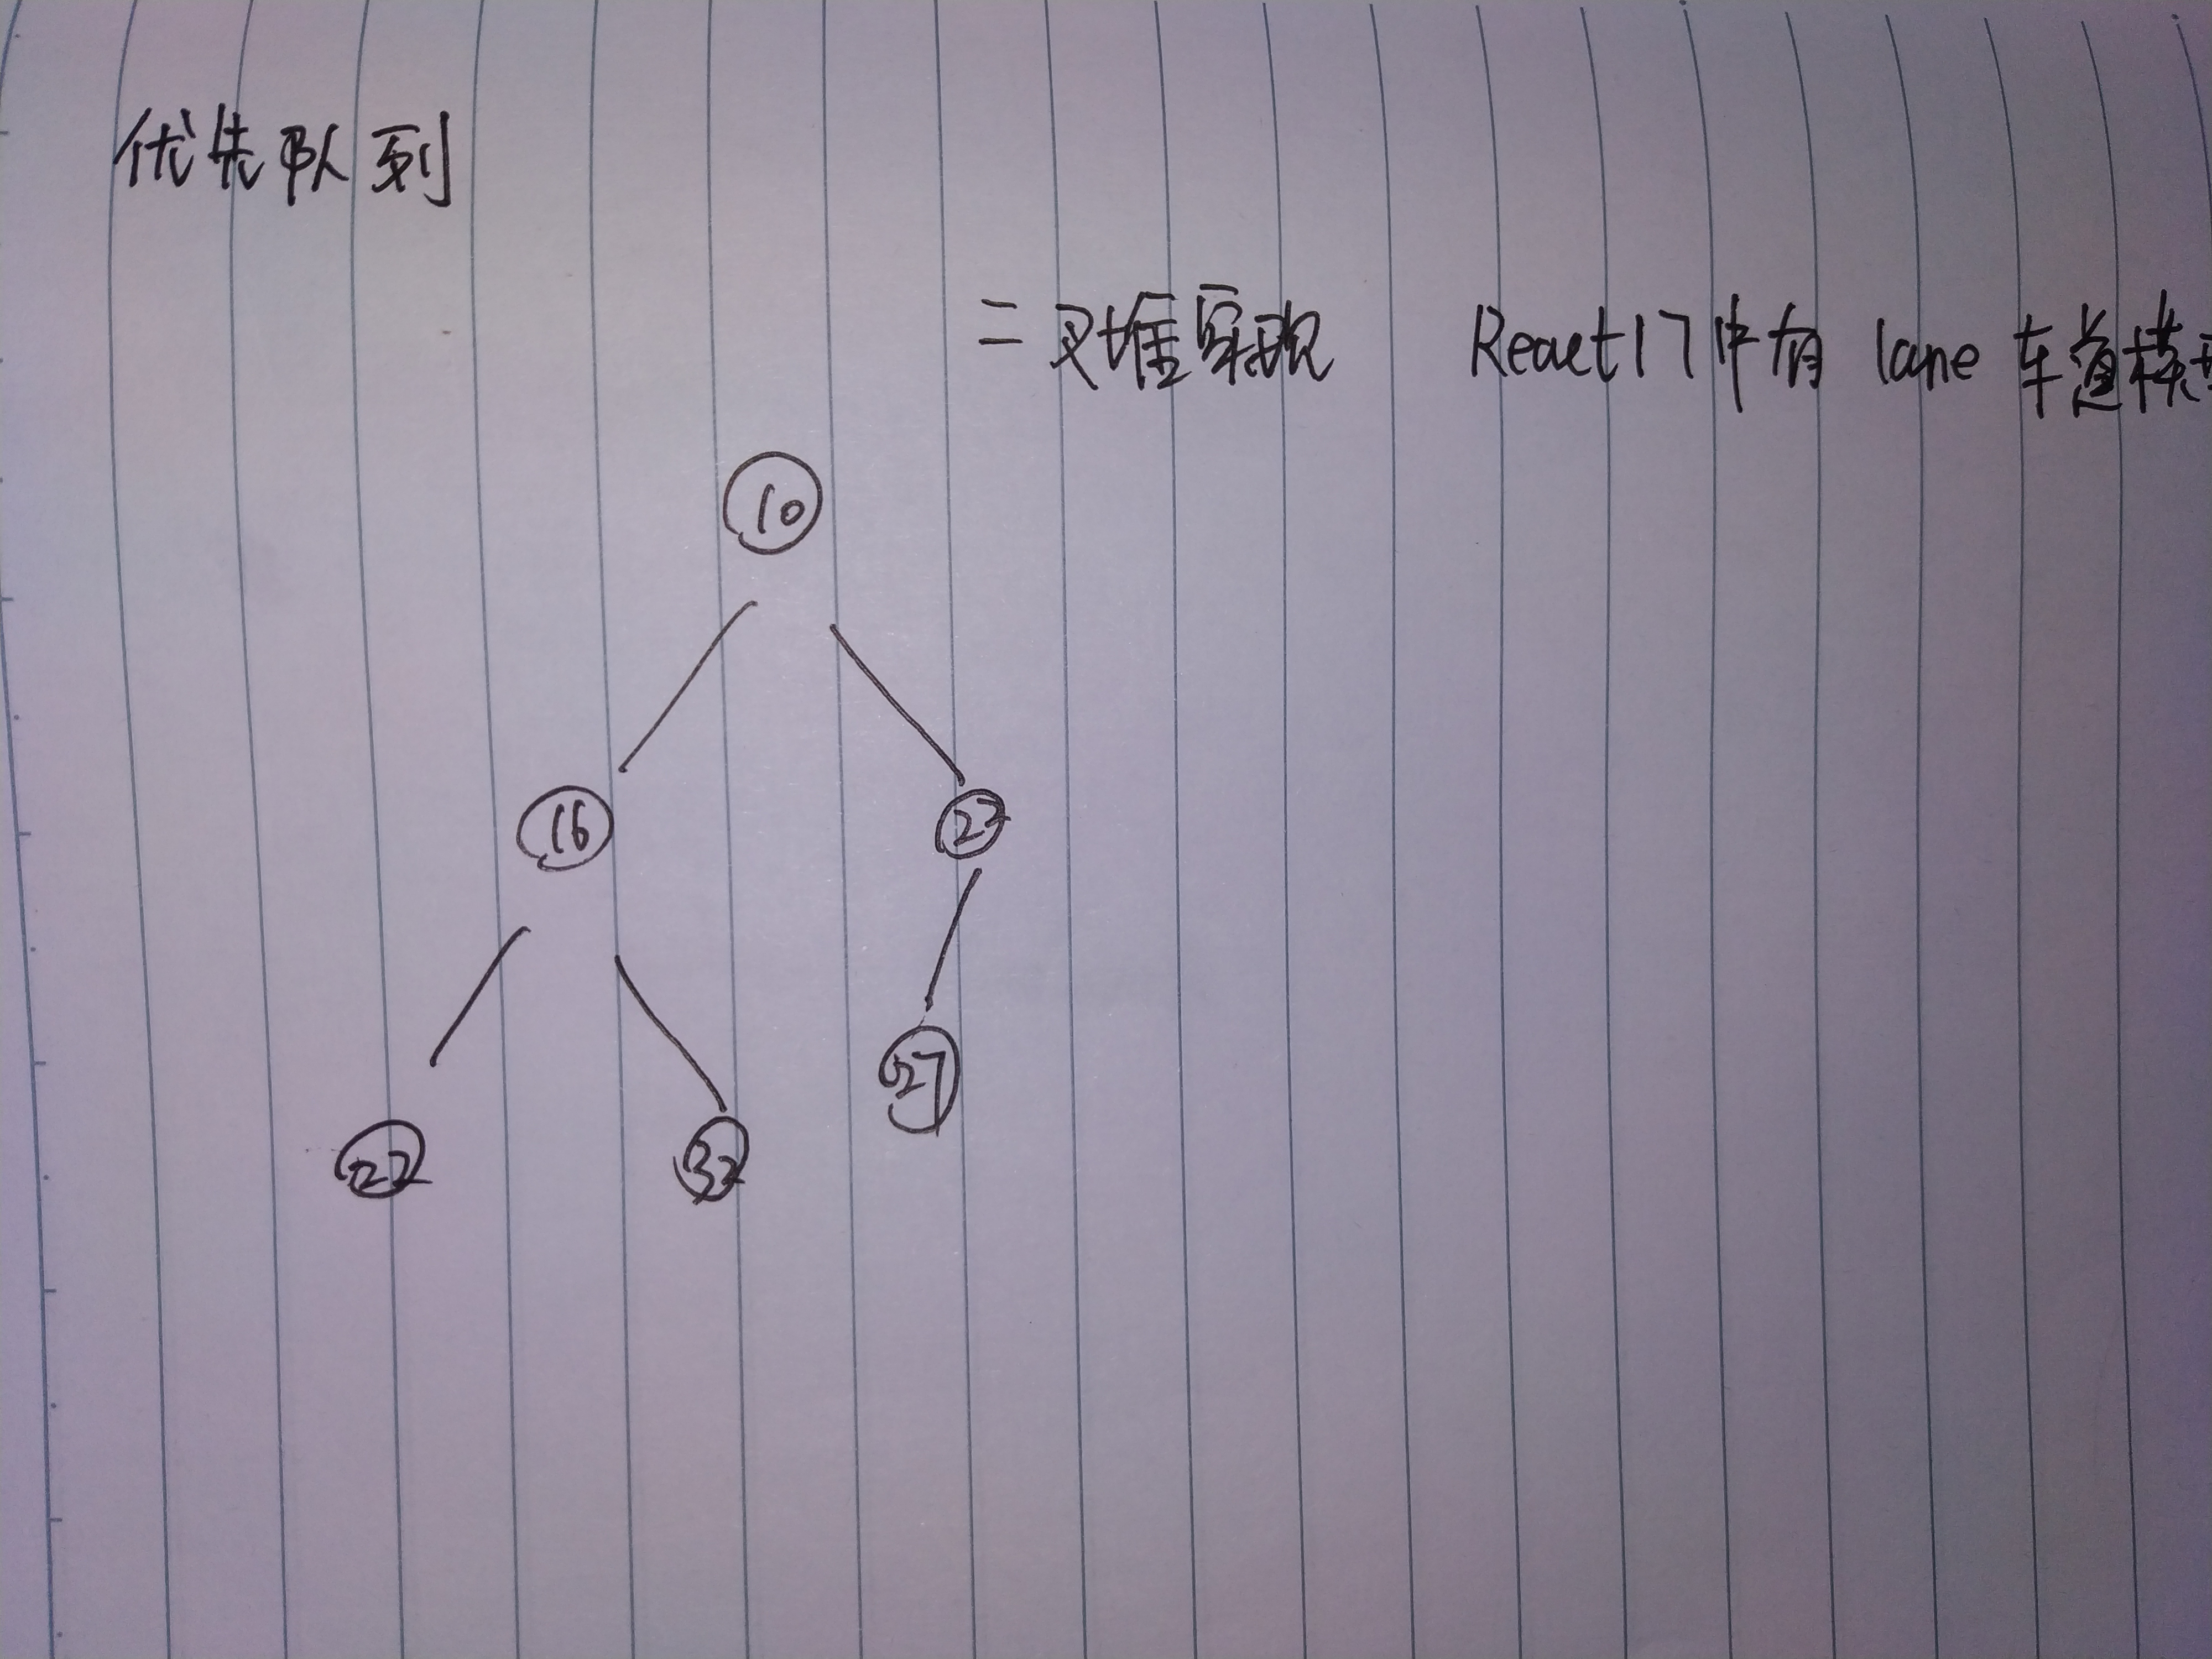 优先队列
二叉堆实现 React17中有 lane 车道模型
10
16
22 32
27